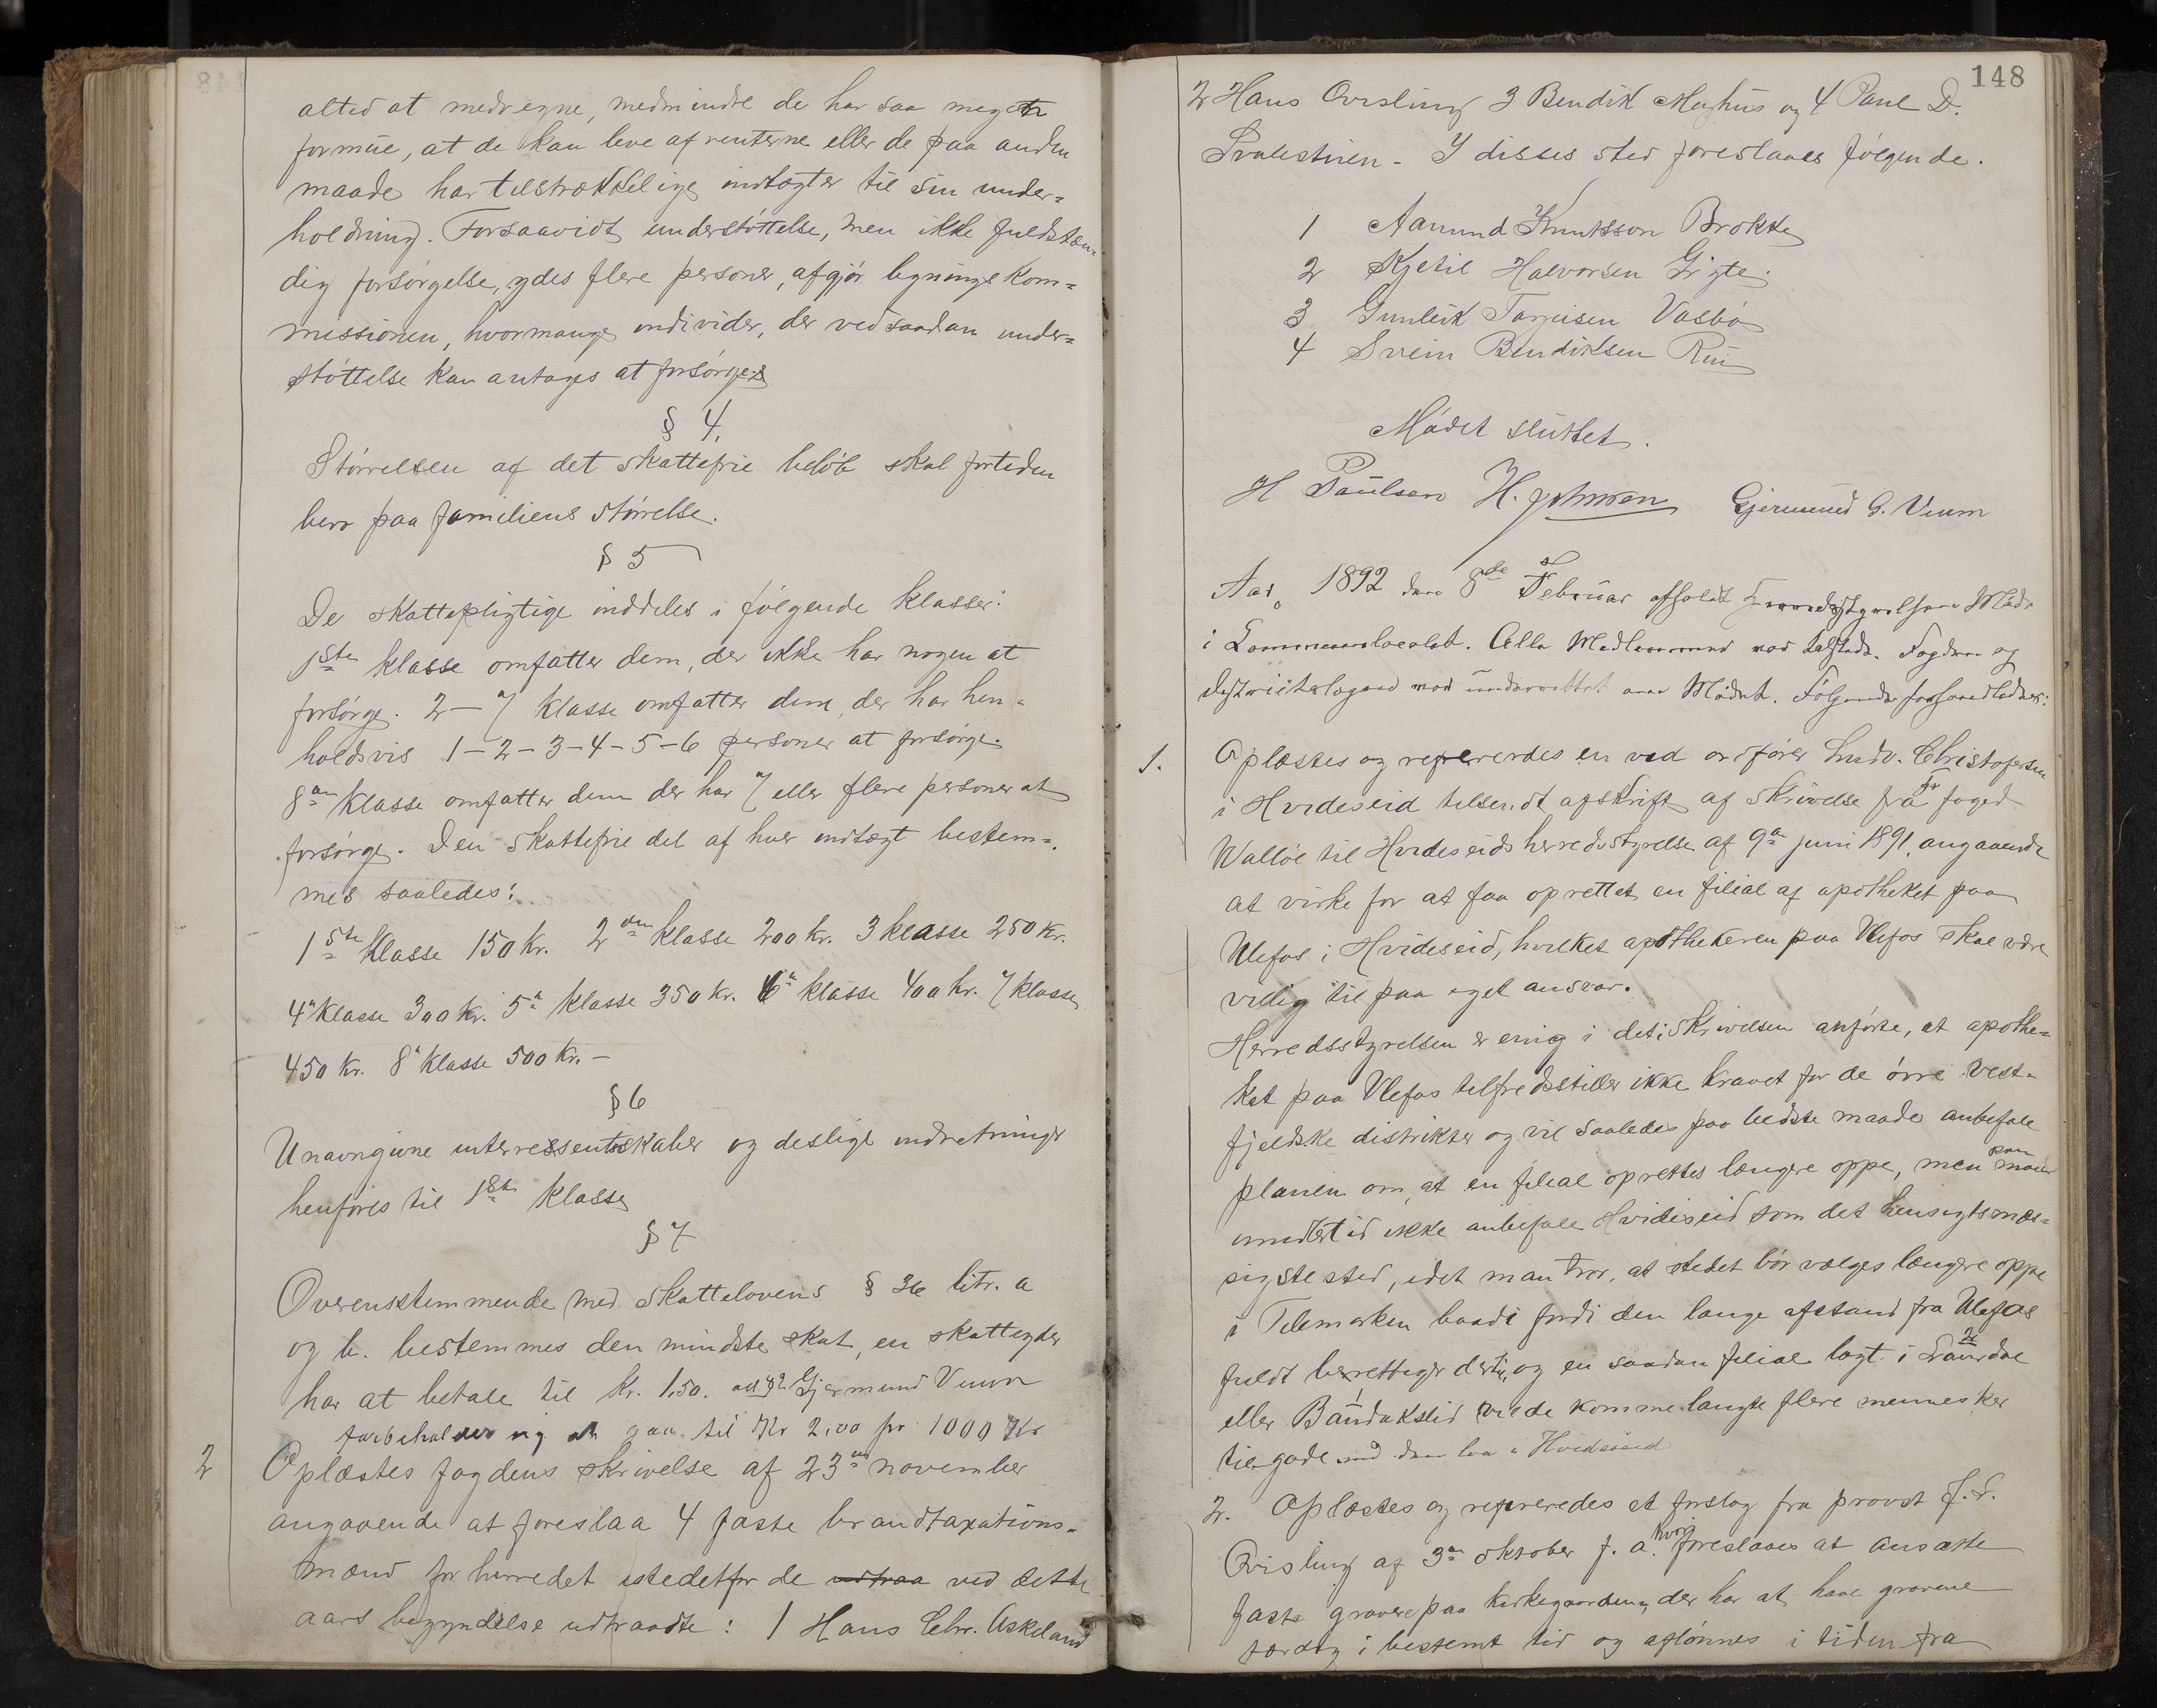 altid at medregne, medmindre de har saa megen
formue, at de kan leve af renterne eller de paa anden
maade har tilstrækkelige indtægter til sin under=
holdning. Forsaavidt understøttelse, men ikke fuldstæn=
dig forsørgelse, ydes flere personer, afgjør ligningskom=
missionen, hvormange individer, der ved saadan under=
støttelse kan antages at forsørges
§ 4.
Størrelsen af det skattefrie beløb skal fortiden
bero paa familiens størrelse.
§ 5
De skattepligtige inddeles i følgende klasser:
1ste klasse omfatter dem, der ikke har nogen at
forsørge. 2 — 7 klasse omfatter dem, der har hen=
holdsvis 1 – 2 – 3 – 4 – 5 – 6 personer at forsørge.
8de klasse omfatter dem der har 7 eller flere personer at
forsørge. Den skattefrie del af hver indtægt bestem=
mes saaledes:
1ste klasse 150 Kr. 2den klasse 200 Kr. 3 klasse 250 Kr.
4e klasse 300 Kr. 5e klasse 350 Kr. 6e klasse 400 Kr. 7 klasse
450 Kr. 8e klasse 500 Kr. –
§ 6
Unavngivne interressentskaber og deslige indretninger
henføres til 1ste klasse
§ 7
Overensstemmende med skattelovens § 36 litr. a
og b. bestemmes den mindste skat, en skatteyder
har at betale til kr. 1.50. Gjermund Veum
forbeholder sig at gaa til Kr 2,00 pr 1000 Kr
2 Oplæstes fogdens skrivelse af 23de november
angaaende at foreslaa 4 faste brandtaxations=
mænd for herredet istedetfor de udtraa ved dette
aars begyndelse udtraadte: 1 Hans Chr. Askeland
148
2 Hans Qvisling 3 Bendik Moghus og 4 Paul D.
I disses sted foreslaaes følgende.
1 Aamund Knutsson Brokke
2 Kjetil Halvorsen Grgte.
3 Gunleik Tarjeisen Vasbø
4 Svein Bendiksen Rui
Mødet sluttet.
H Paulsen H. Johnsen Gjermund G. Veum
Aar 1892 den 8de Februar afholdt Herredsstyrelsen Møde
i Communelocalet. Alle Medlemmer var tilstede. Fogden og
var underrettet om Mødet. Følgende forhandledes:
1. Oplæstes og refererdes en ved ordfører Ludv. Christofersen
i Hvideseid tilsendt afskrift af skrivelse fra Hr foged
Walløe til Hvideseids herredsstyrelse af 9de juni 1891, angaaende
at virke for at faa oprettet en filial af apotheket paa
Ulefos i Hvideseid, hvilket apothekeren paa Ulefos skal være
villig til paa eget ansvar.
Herredsstyrelsen er enig i det i skrivelsen anførte, at apothe=
ket paa Ulefos tilfredsstiller ikke kravet for de øvre vest=
fjeldske distrikter og vil saaledes paa bedste maade anbefale
planen om, at en filial oprettes længere oppe, men man kan
imidlertid ikke anbefale Hvideseid som det hensigtsmæs=
sigste sted, idet man tror, at stedet bør vælges længere oppe
i Telemarken baade fordi den lange afstand fra Ulefos
fuldt berettiger dertil, og en saadan filial lagt i Laurdal
eller Bandakslid vilde komme langt flere mennesker
tilgode end den laa i Hvideseid
2. Oplæstes og refereredes et forslag fra provst J. L.
Qvisling af 3de oktober f. a. hvori foreslaaes at ansætte
faste gravere paa kirkegaardene, der har at have gravene
færdig i bestemt tid og aflønnes i tiden fra